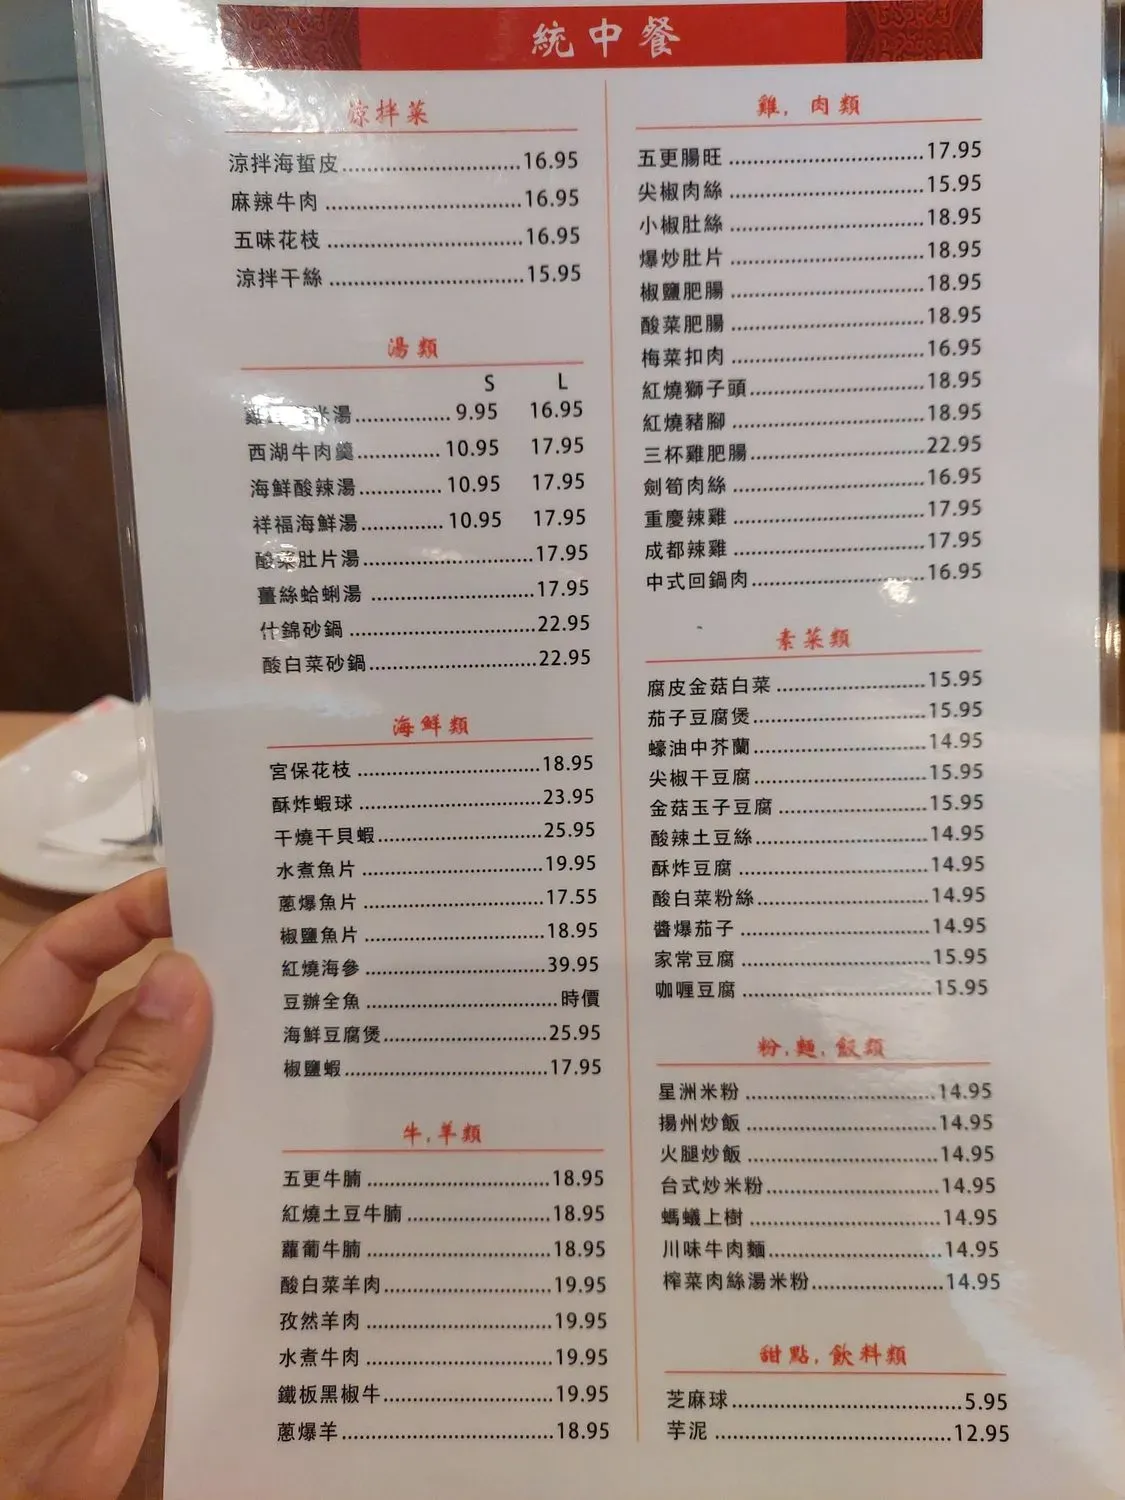 統中餐
涼拌菜
涼拌海蜇皮 16.95
麻辣牛肉 16.95
五味花枝 16.95
涼拌干絲 15.95
湯類
S L
米湯 9.95 16.95
西湖牛肉羹 10.95 17.95
海鮮酸辣湯 10.95 17.95
祥福海鮮湯 10.95 17.95
酸菜肚片湯 17.95
薑絲蛤蜊湯 17.95
什錦砂鍋 22.95
酸白菜砂鍋 22.95
海鮮類
宮保花枝 18.95
酥炸蝦球 23.95
干燒干貝蝦 25.95
水煮魚片 19.95
蔥爆魚片 17.55
椒鹽魚片 18.95
紅燒海參 39.95
豆辦全魚 時價
海鮮豆腐煲 25.95
椒鹽蝦 17.95
牛,羊類
五更牛腩 18.95
紅燒土豆牛腩 18.95
蘿蔔牛腩 18.95
酸白菜羊肉 19.95
孜然羊肉 19.95
水煮牛肉 19.95
鐵板黑椒牛 19.95
蔥爆羊 18.95
雞,肉類
五更腸旺 17.95
尖椒肉絲 15.95
小椒肚絲 18.95
爆炒肚片 18.95
椒鹽肥腸 18.95
酸菜肥腸 18.95
梅菜扣肉 16.95
紅燒獅子頭 18.95
紅燒豬腳 18.95
三杯雞肥腸 22.95
劍筍肉絲 16.95
重慶辣雞 17.95
成都辣雞 17.95
中式回鍋肉 16.95
素菜類
腐皮金菇白菜 15.95
茄子豆腐煲 15.95
蠔油中芥蘭 14.95
尖椒干豆腐 15.95
金菇玉子豆腐 15.95
酸辣土豆絲 14.95
酥炸豆腐 14.95
酸白菜粉絲 14.95
醬爆茄子 14.95
家常豆腐 15.95
咖喱豆腐 15.95
粉,麵,飯類
星洲米粉 14.95
揚州炒飯 14.95
火腿炒飯 14.95
台式炒米粉 14.95
螞蟻上樹 14.95
川味牛肉麵 14.95
榨菜肉絲湯米粉 14.95
甜點,飲料類
芝麻球 5.95
芋泥 12.95